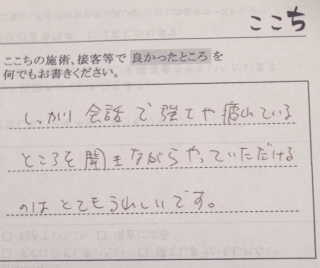 ここち
ここちの施術、接客等で良かったところを
何でもお書きください。
しっかり会話で強さや疲れている
ところを聞きながらやっていただける
のはとてもうれしいです。